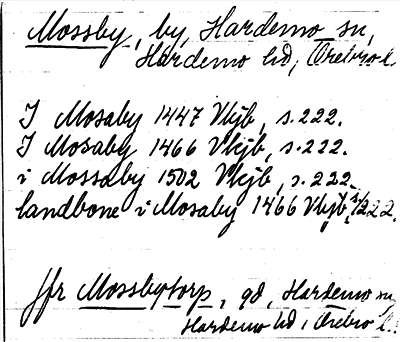 Mossby, by, Hardemo sn,
Hardemo hd, Örebro l.
I Mosaby 1447 Vkjb, s. 222.
I Mosaby 1466 Vkjb, s. 222.
i Mossaby 1502 Vkjb, s. 222.
landbone i Mosaby 1466 Vkjb, s. 222.
Jfr Mossbytorp, gd, Hardemo sn,
Hardemo hd, Örebro l.